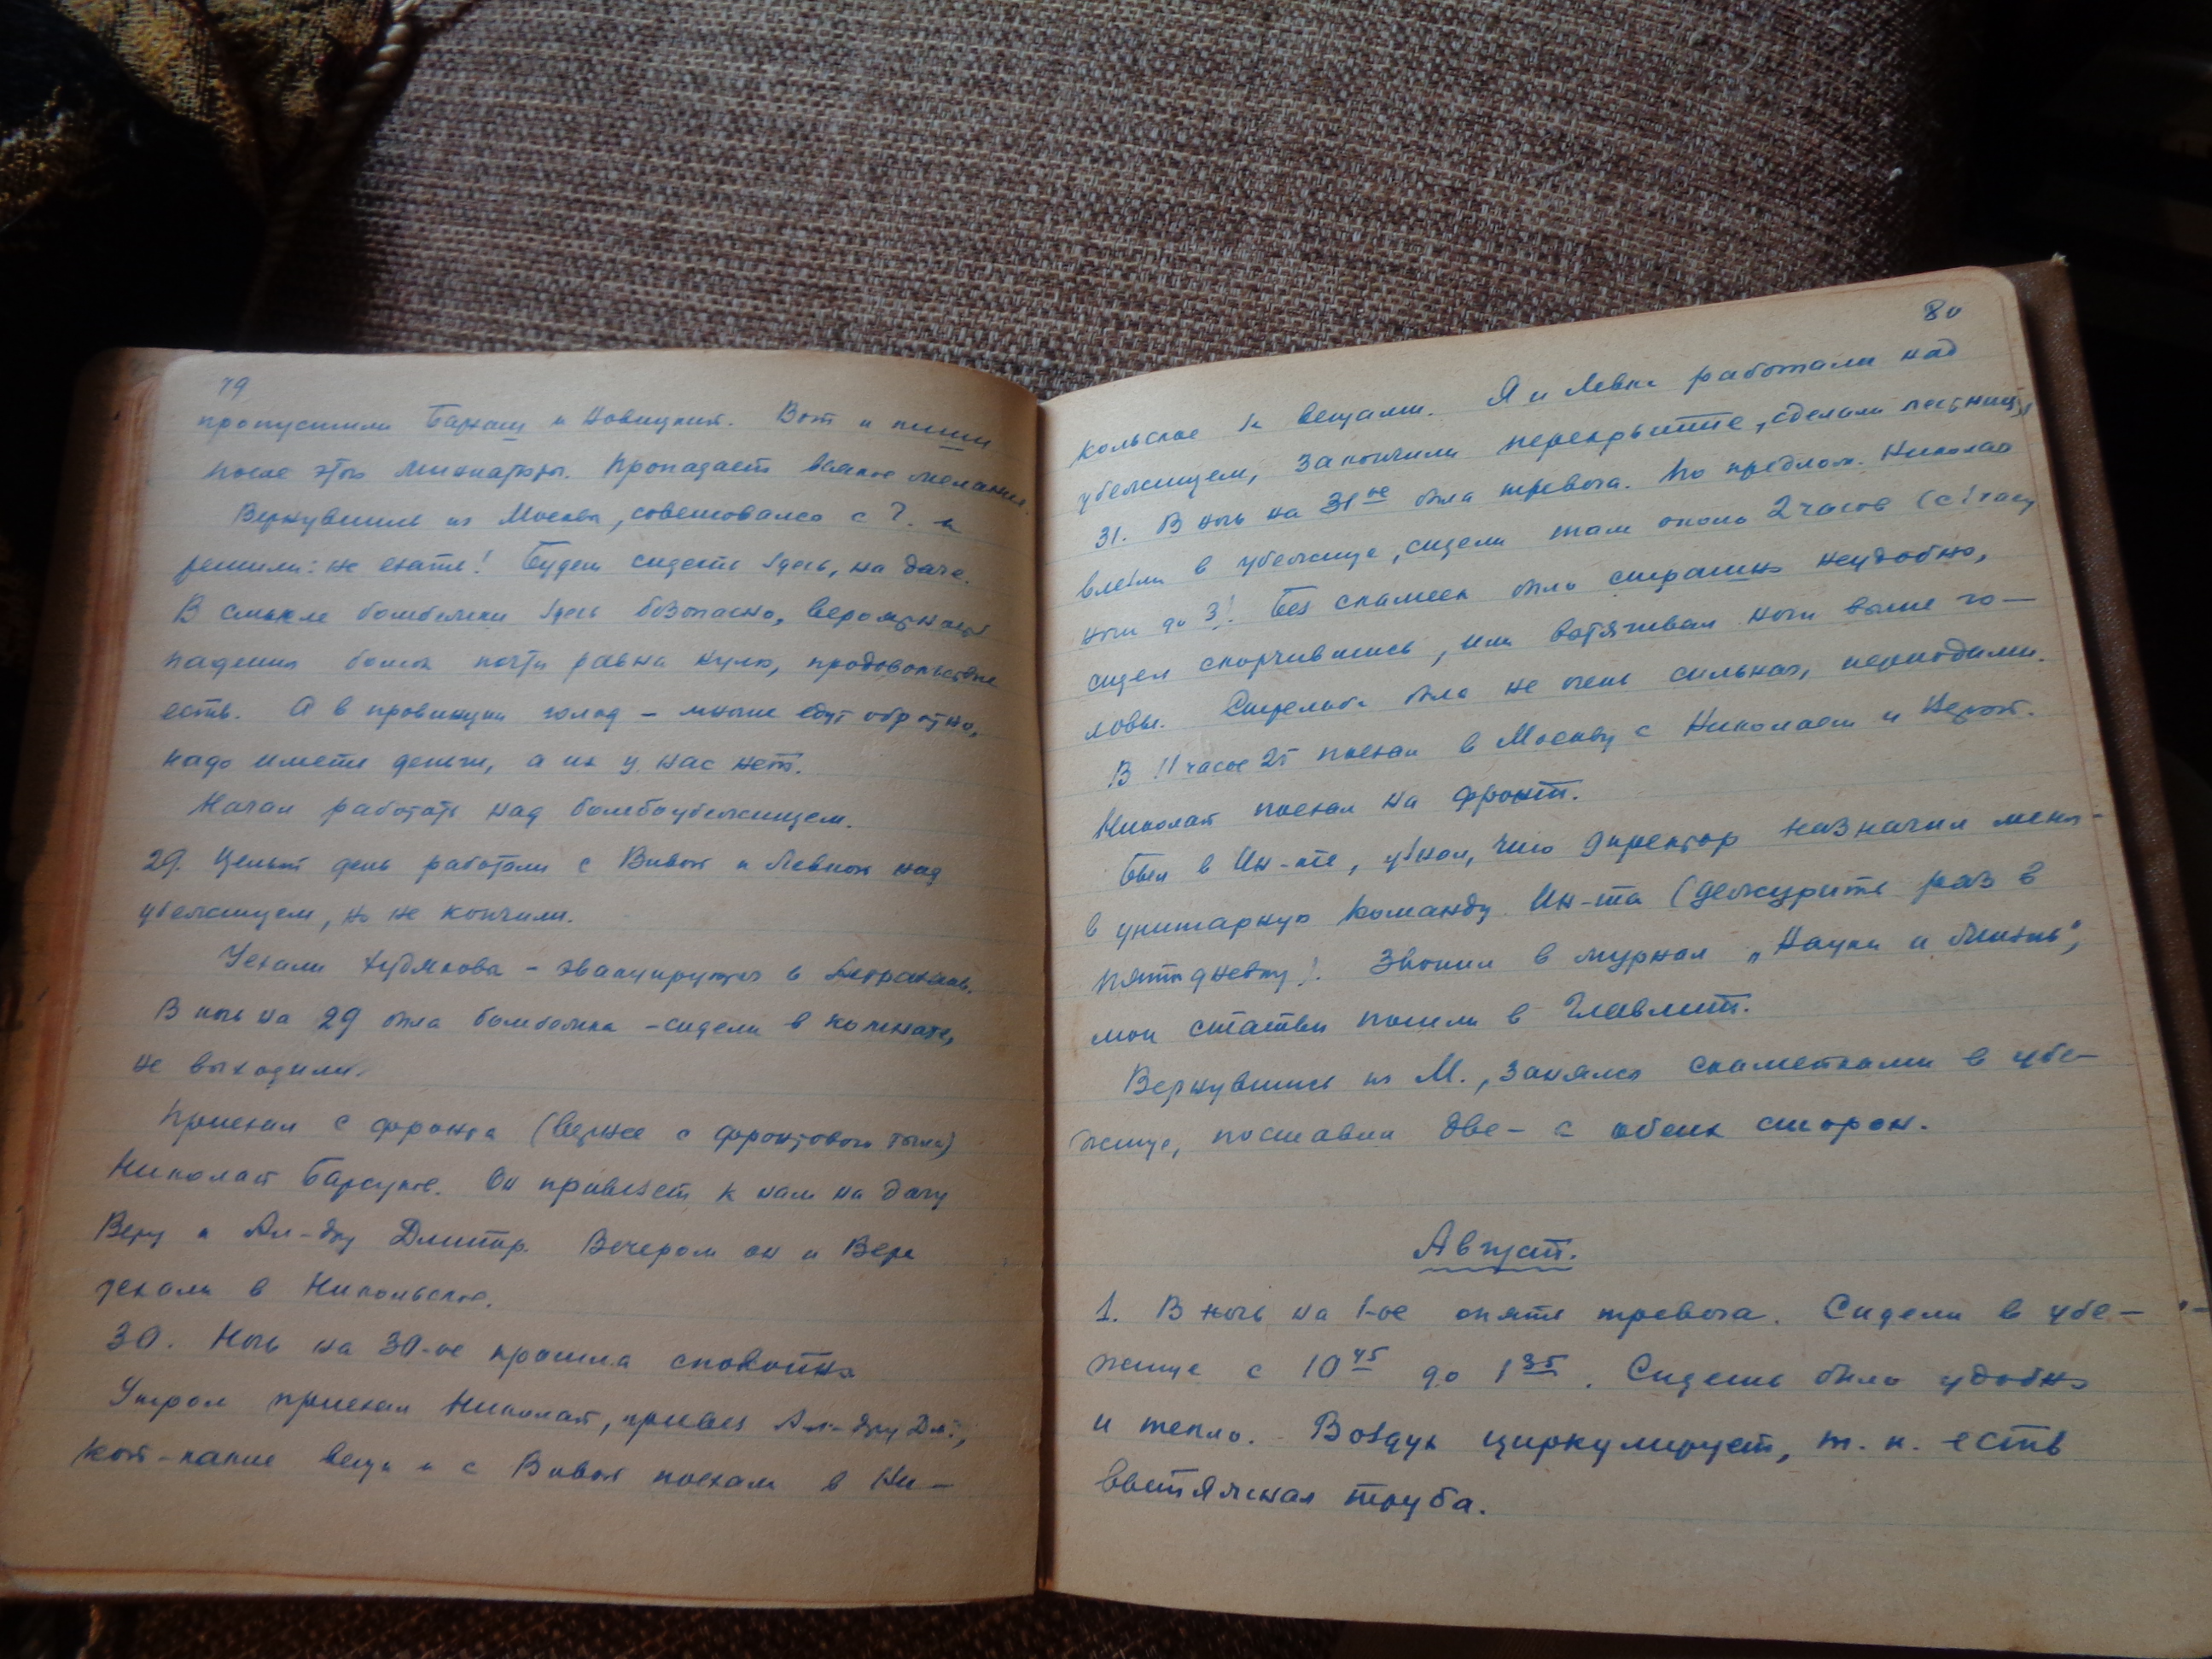 79
пропустили Бархаш и Новицкий. Вот и пиши
после этого миниатюры. Пропадает всякое желание.
Вернувшись из Москвы, советовался с Г. и
решили: не ехать! Будем сидеть здесь, на даче.
В смысле бомбежки здесь безопасно, вероятность
падения бомбы почти равна нулю, продовольствие
есть. А в провинции голод – многие едут обратно,
надо иметь деньги, а их у нас нет.
Начал работать над бомбоубежищем.
29. Целый день работали с Вивой и Левкой над
убежищем, но не кончили.
Уехали Худяковы – эвакуируются в Астрахань.
В ночь на 29 была бомбежка – сидели в комнате,
не выходили.
Приехал с фронта (вернее с фронтового тыла)
Николай Барсуков. Он привезет к нам на дачу
Веру и Ал-дру Дмитр. Вечером он и Вера
уехали в Никольское.
30. Ночь на 30-ое прошла спокойно
Утром приехал Николай, привез Ал-дру Дм.,
кой-какие вещи и с Вивой поехал в Ни-
80
кольское за вещами. Я и Левка работали над
убежищем, закончили перекрытие, сделали лестницу.
31. В ночь на 31ое была тревога. По предлож. Николая
влезли в убежище, сидели там около 2 часов (с 1 часу
ночи до 3! Без скамеек было страшно неудобно,
сидел скорчившись, или вытягивал ноги выше го-
ловы. Стрельба была не очень сильная, периодами.
В 11 часов 25 поехал в Москву с Николаем и
Николай поехал на фронт.
Был в Ин-те, узнал, что директор назначил меня
в унитарную команду Ин-та (дежурить раз в
пятидневку! Звонил в журнал „Наука и Жизнь",
мои статьи пошли в Главлит.
Вернувшись из М., занялся скамейками в убе-
жище, поставил две – с обеих сторон.
Август.
1. В ночь на 1-ое опять тревога. Сидели в убе-
жище с 10 45 до 1 35. Сидеть было удобно
и тепло. Воздух циркулирует, т. к. есть
вытяжная труба.